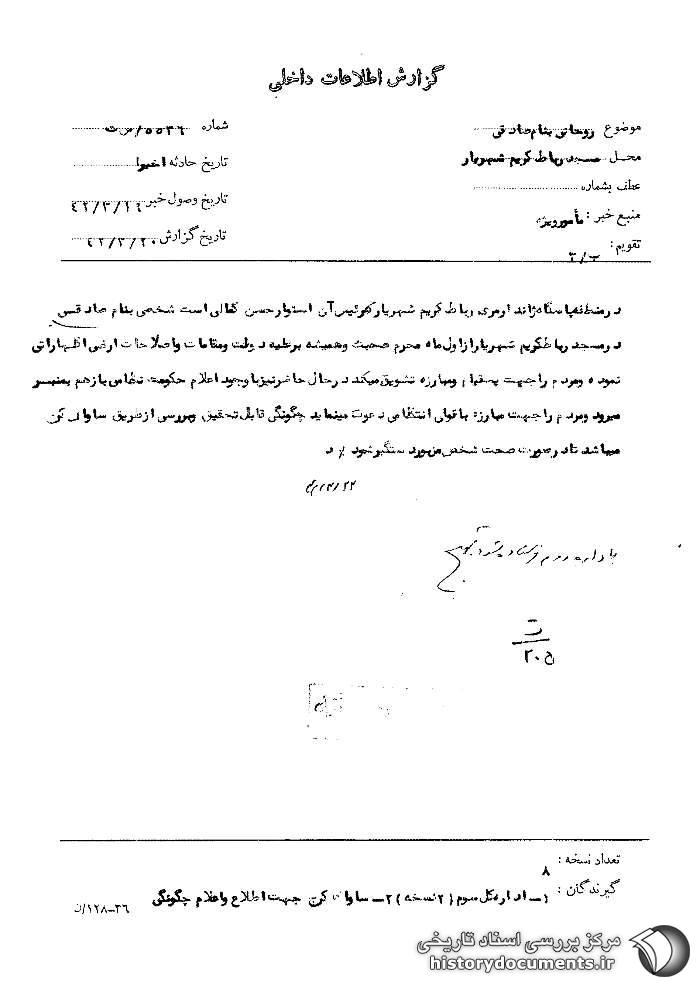 گزارش اطلاعات داخلی
موضوع روحانی بنام صادقی
شماره ۵۵۳۶/س ت
محل مسجد رباط کریم شهریار
تاریخ حادثه اخیرا
عطف بشماره
تاریخ وصول خبر
منبع خبر : مأمور ویژه
تاریخ گزارش ۴۲/۳/۲۰
تقویم : ب/۳
در منطقه پاسگاه ژاندارمری رباط کریم شهریار که رئیس آن استوار حسن کمالی است شخصی بنام صادقی
در مسجد رباط کریم شهریار از اول ماه محرم صحبت و همیشه بر علیه دولت و مقامات و اصلاحات ارضی اظهاراتی
نموده و مردم را جهت قیام و مبارزه تشویق میکند در حال حاضر نیز با وجود اعلام حکومت نظامی باز هم بمنبر
میرود و مردم را جهت مبارزه با قوای انتظامی دعوت مینماید چگونگی قابل تحقیق و بررسی از طریق ساواک کرج
میباشد تا در صورت صحت شخص مزبور دستگیر شود
باداره دوم
۲۰۵
تعداد نسخه :
۸
گیرندگان : ۱ـ اداره کل سوم (۲ نسخه) ۲ـ ساواک کرج جهت اطلاع و اعلام چگونگی
۳۶-۱۲۸/ن
مرکز بررسی اسناد تاریخی
historydocuments.ir